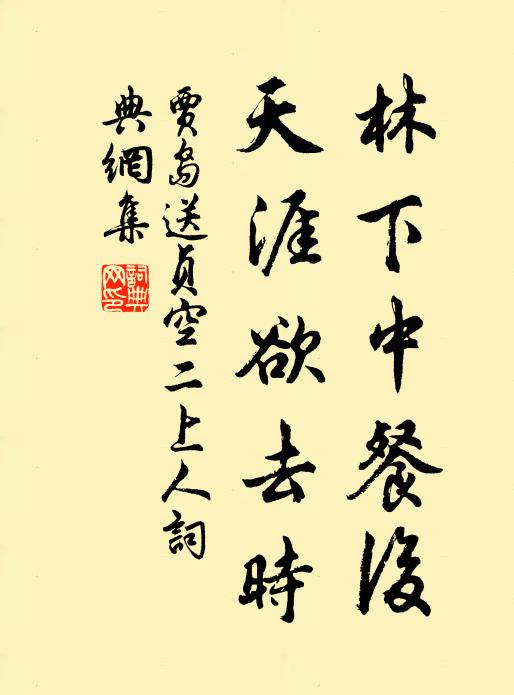 林下中餐後
天涯欲去時
賈島送貞空二上人詞
典網集
詞典
网印